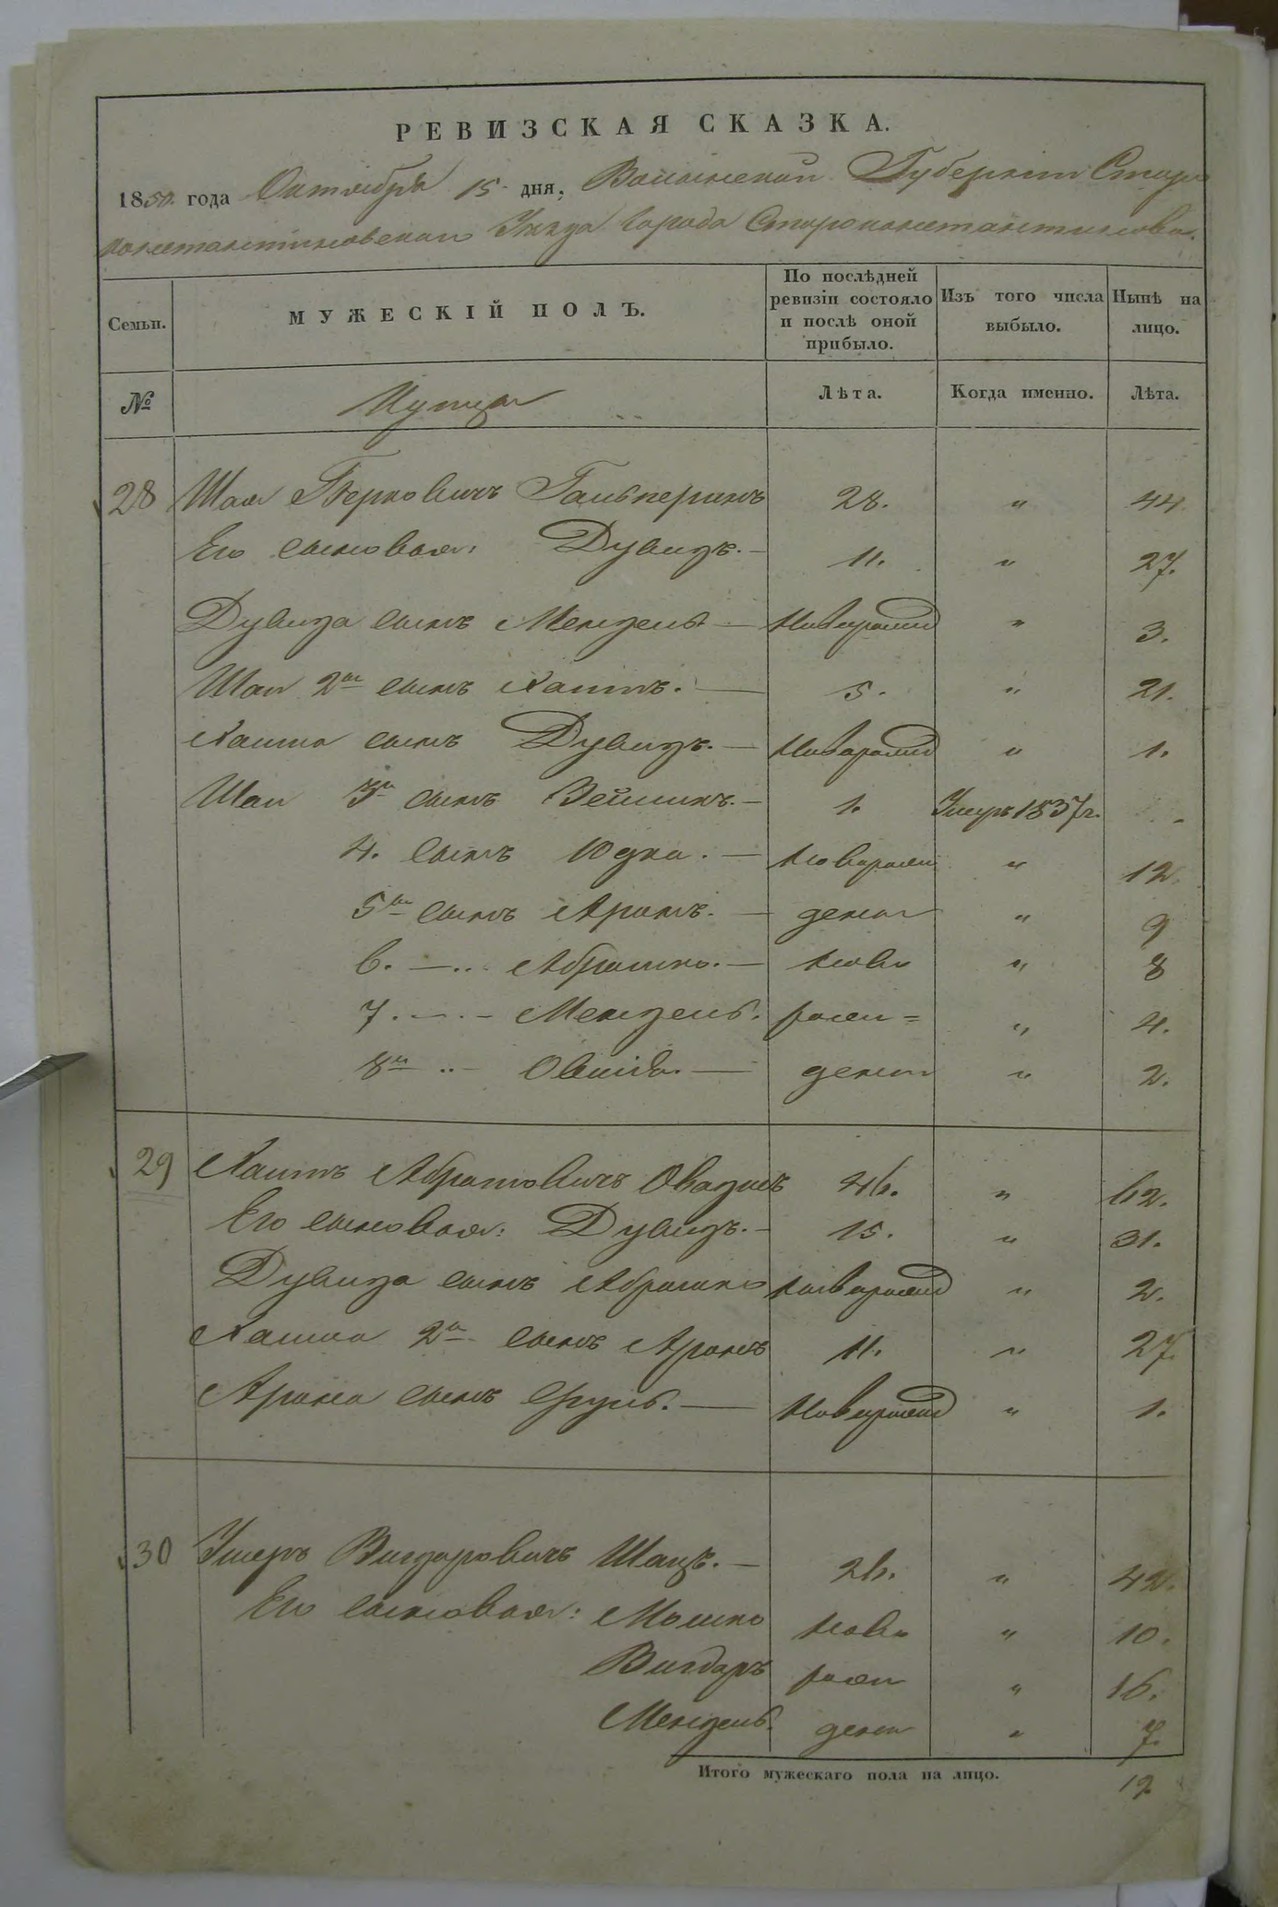 РЕВИЗСКАЯ СКАЗКА.
1850 года Октября 15 дня, Волынской Губернии Старо
константиновскаго Уѣзда Города Староконстантинова.
Семьи.
МУЖЕСКІЙ ПОЛЪ.
По послѣдней ревизіи состояло и послѣ оной прибыло.
Изъ того числа выбыло.
Нынѣ на лицо.
№
Лѣта.
Когда именно.
Лѣта.
28 Шая Берковичъ Гальперинъ 28. " 44
Его сыновья: Дувидъ. — 11. " 27.
Дувида сынъ Мендель — Новорожд " 3.
Шаи 2й сынъ Хаимъ. — 5. " 21.
Хаима сынъ Дувидъ. — Новорожд " 1.
Шаи 3й сынъ Зейликъ. — 1. Умеръ 1837г.
4. сынъ Юдка. — Новорож " 12.
5й сынъ Аронъ. — денъ " 9
6. — .. Абрамко. — Ново " 8
7. — .. — Мендель. рож= " 4.
8й .. — — денъ " 2.
29 Хаимъ Абрамовичъ 46. " 62.
Его сыновья: Дувидъ. — 15. " 31.
Дувида сынъ Абрамко Новорожд " 2.
Хаима 2й сынъ Аронъ 11. " 27.
Арона сынъ Сруль. — Новорожд " 1.
30 Ушеръ Вигдоровичъ Шацъ. — 26. " 42.
Его сыновья: Мошко Ново " 10.
Вигдоръ рож " 16.
Мендель. дены " 7.
Итого мужескаго пола на лицо. 19